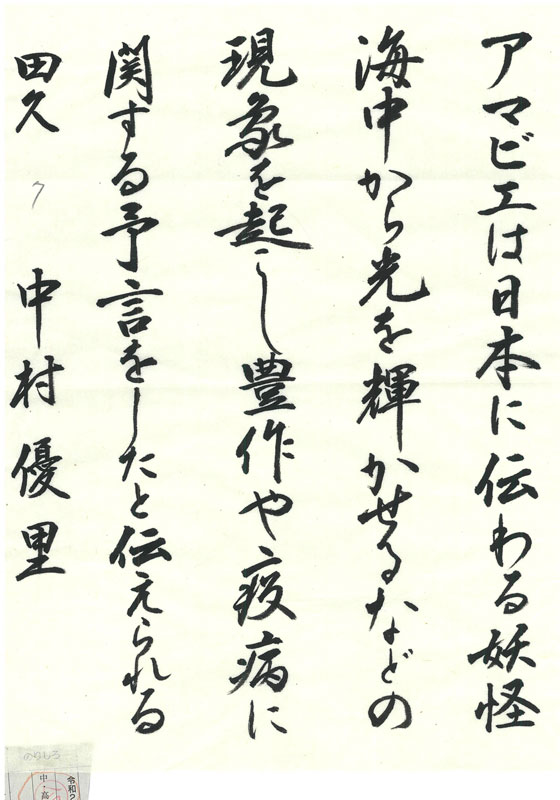 アマビエは日本に伝わる妖怪
海中から光を輝かせるなどの
現象を起こし豊作や疫病に
関する予言をしたと伝えられる
田久 ク 中村優里
のりしろ
令和2
中・高